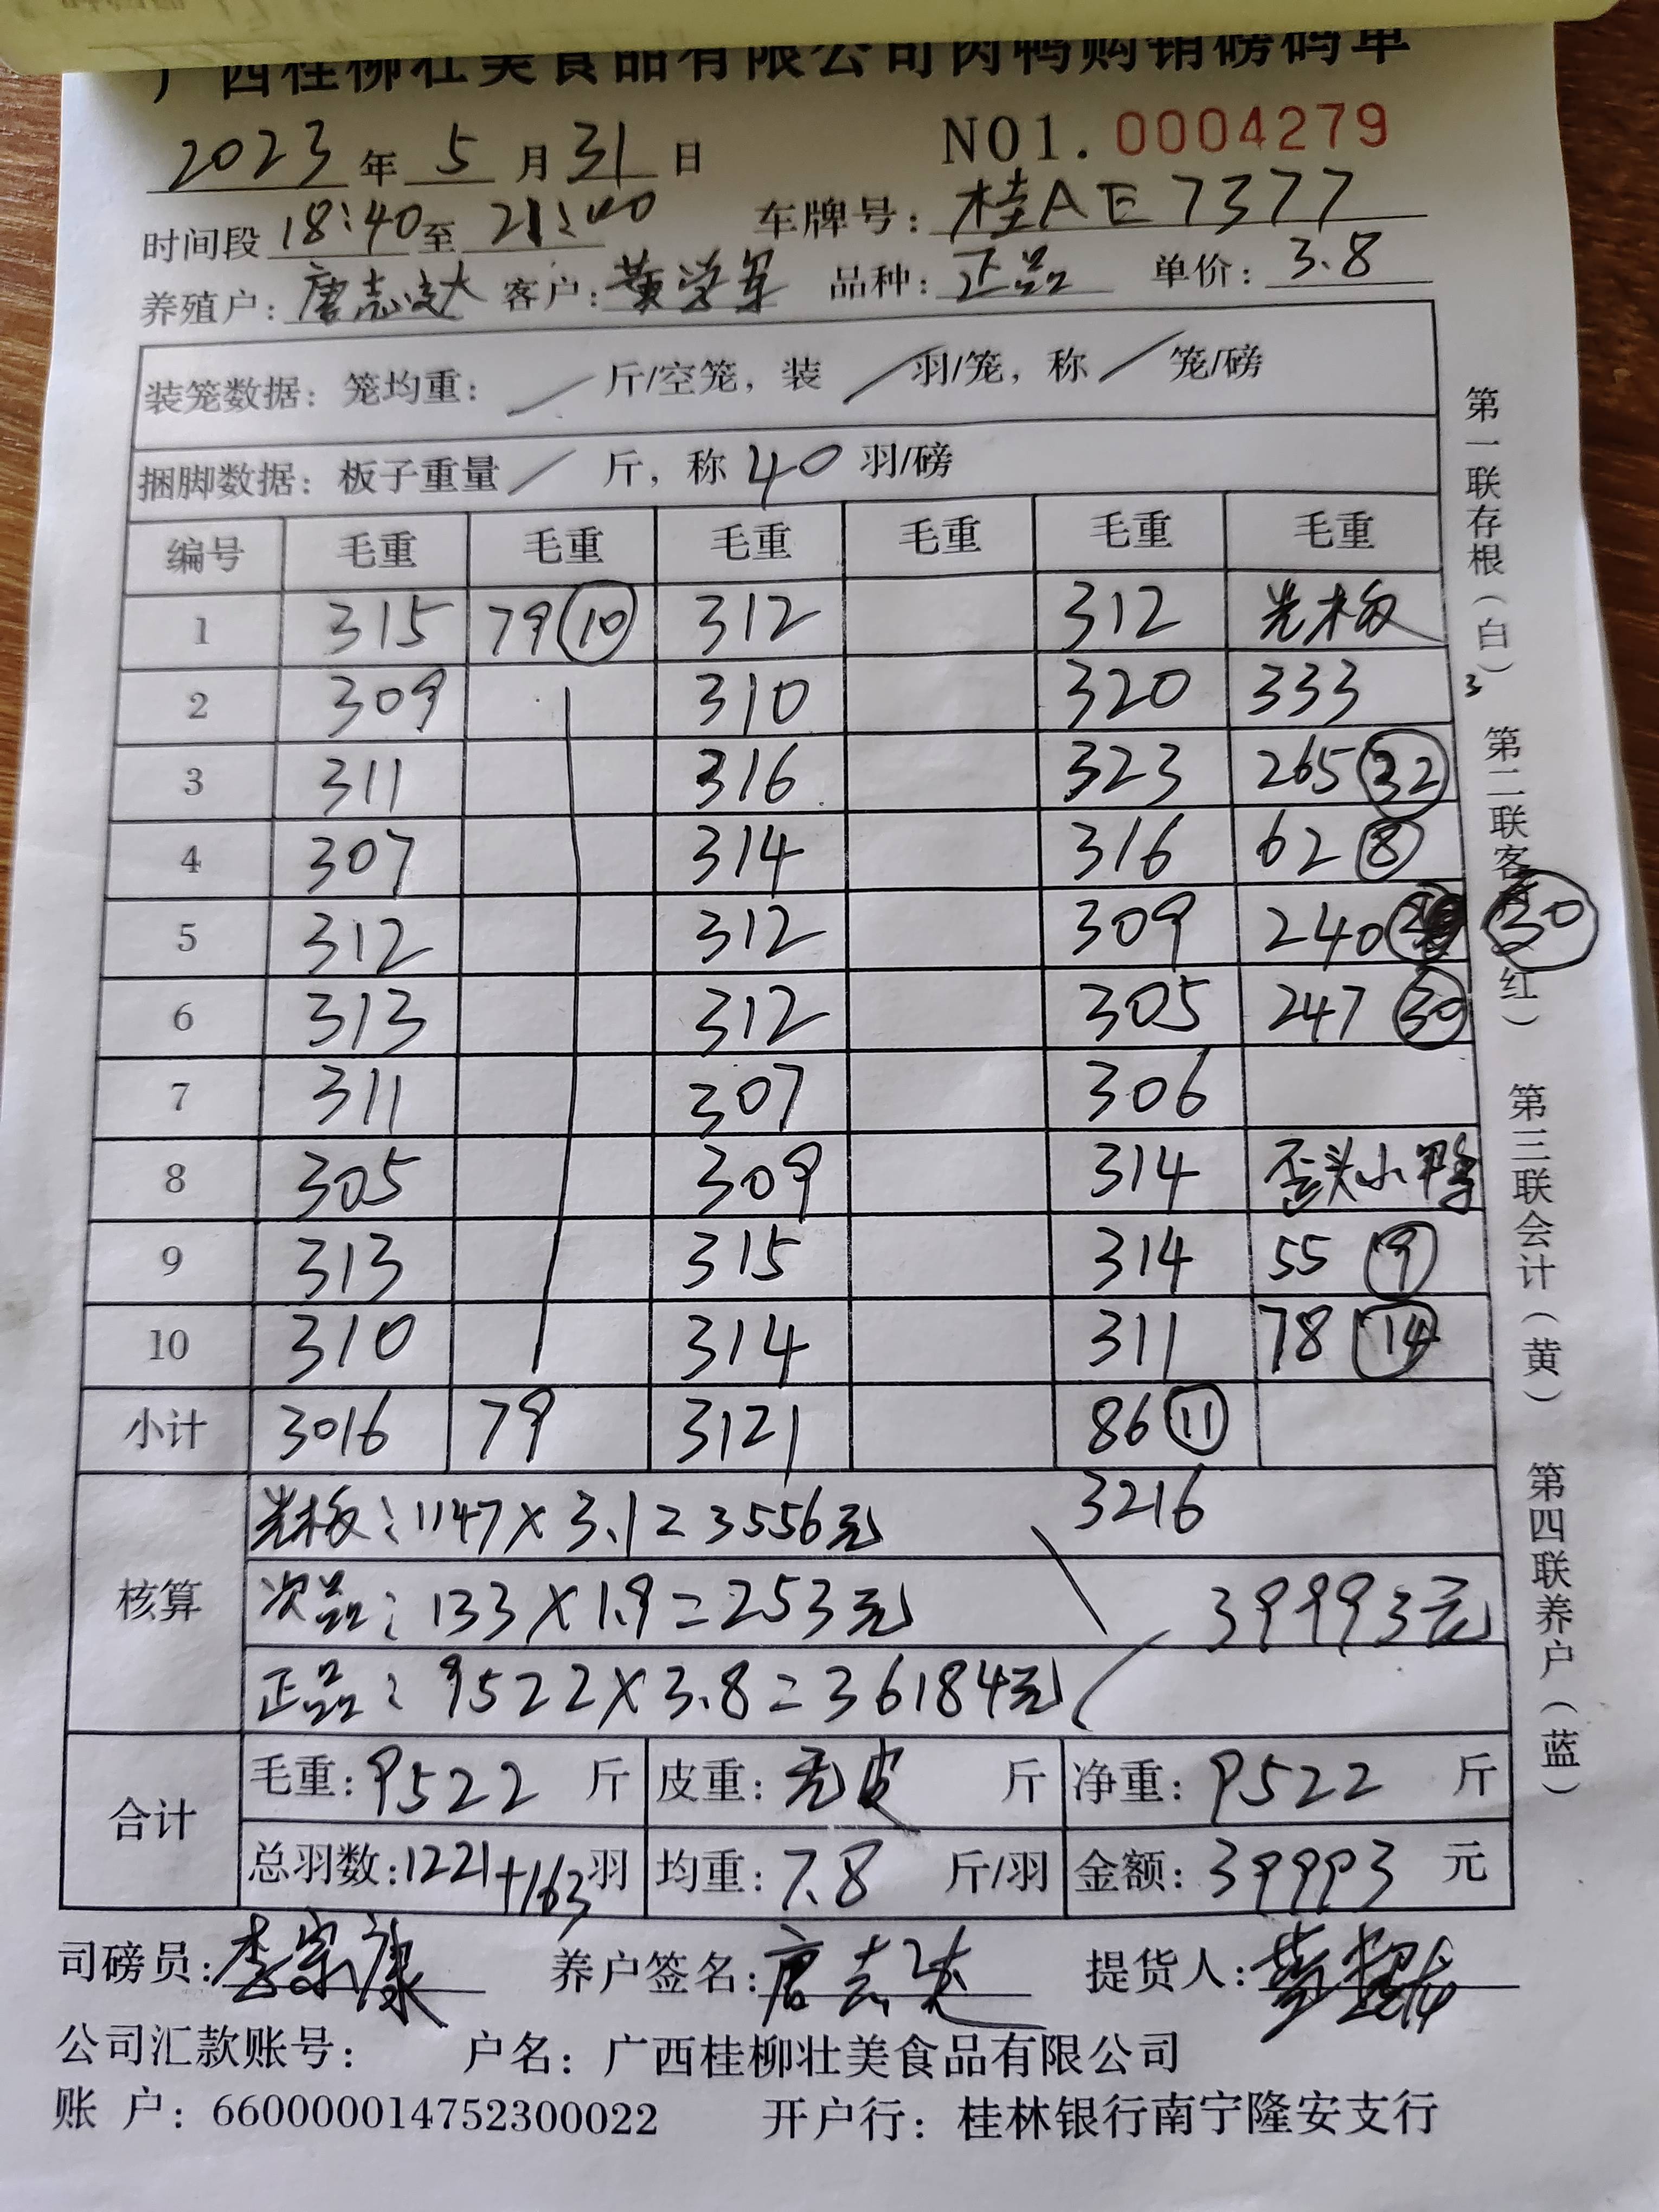 广西桂柳壮美食品有限公司肉鸭购销磅码单
2023年5月31日 NO1.0004279
时间段18:40至21:00 车牌号:桂AE7377
养殖户:唐志达 客户:黄学军 品种:正品 单价:3.8
装笼数据:笼均重:/斤/空笼,装/羽/笼,称/笼/磅
捆脚数据:板子重量/斤,称40羽/磅
编号 毛重 毛重 毛重 毛重 毛重 毛重
1 315 79⑩ 312 312 光板
2 309 310 320 333
3 311 316 323 265㉜
4 307 314 316 62⑧
5 312 312 309 240 ㉚
6 313 312 305 247㉚
7 311 307 306
8 305 309 314 歪头小鸭
9 313 315 314 55⑨
10 310 314 311 78⑭
小计 3016 79 3121 86⑪
3216
核算
光板:1147×3.1=3556元
次品:133×1.9=253元 39993元
正品:9522×3.8=36184元
合计
毛重:9522斤 皮重:无皮斤 净重:9522斤
总羽数:1221+163羽 均重:7.8斤/羽 金额:39993元
司磅员:李宗康 养户签名:唐志达 提货人:
公司汇款账号: 户名:广西桂柳壮美食品有限公司
账 户:660000014752300022 开户行:桂林银行南宁隆安支行
第一联存根(白)
3
第二联客 红)
第三联会计(黄)
第四联养户(蓝)